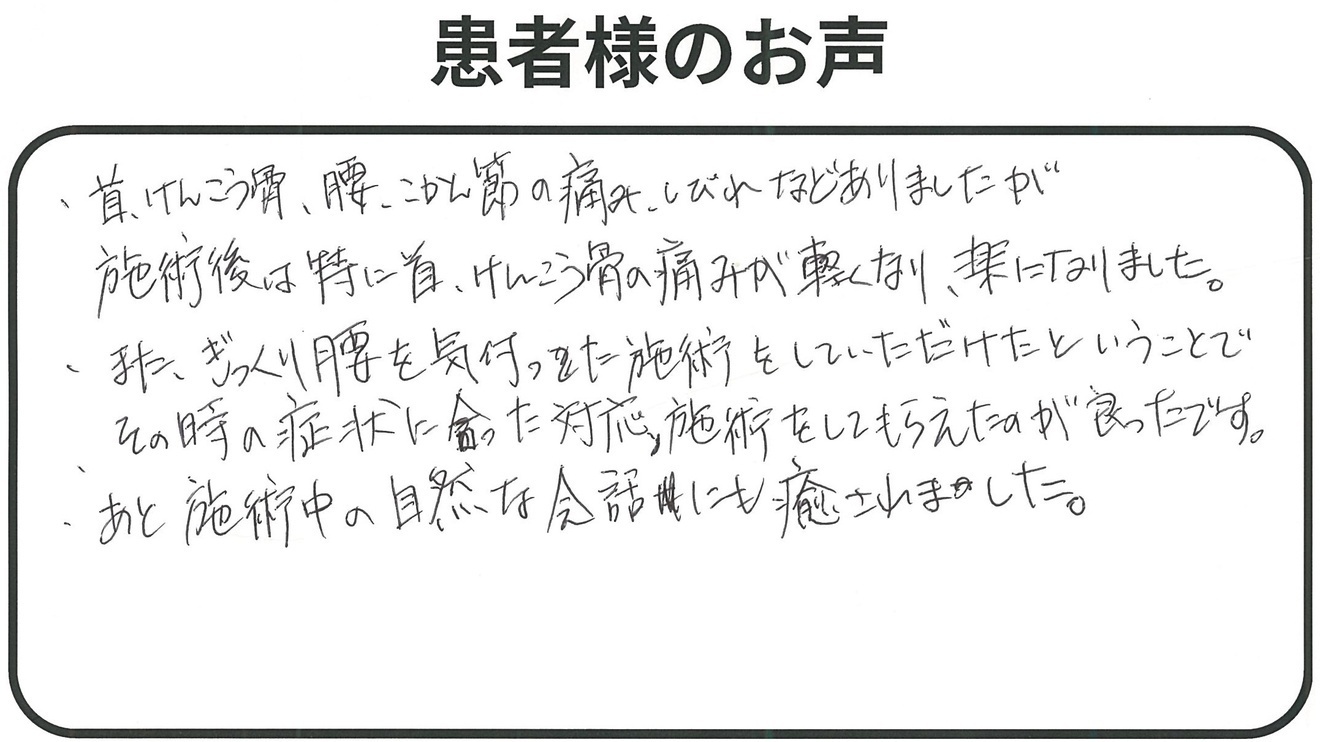 患者様のお声
・首、けんこう骨、腰、こかん節の痛み、しびれなどありましたが
施術後は特に首、けんこう骨の痛みが軽くなり、楽になりました。
・また、ぎっくり腰を気付った施術をしていただけたということで
その時の症状に合った対応、施術をしてもらえたのが良ったです。
・あと施術中の自然な会話にも癒されました。